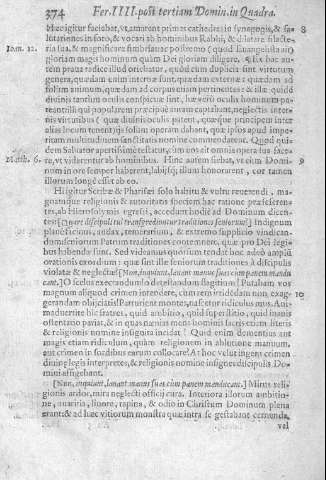 374 Fer. IIII. post tertiam Domin. in Quadra.
Hæc igitur faciebat, vt amarent primas cathedras in synagogis, & sa- 8
lutationes in foro, & vocari ab hominibus Rabbi, & dilatare
ria sua, & magnificare fimbrias: ac postremo (quod Euangelista ait)
Ioan. 12. gloriam magis hominum quàm Dei gloriam diligere. Ex hac au-
tem praua radice illud oriebatur, quòd cùm duplicia sint virtutum
genera, quædam enim interna sunt, quædam externa: quædam ad
solum animum, quædam ad corpus etiam pertinentes: & illæ quidē
diuinis tantùm oculis conspicuæ sint, hæ verò oculis hominum pa-
teant: illi qui popularem præcipuè auram captabant, neglectis inter-
nis virtutibus (quæ diuinis oculis patent, quæque principem inter
alias locum tenent) ijs solùm operam dabant, quæ ipsos apud imperi-
tam multitudinem sanctitatis nomine commendarent. Quod qui-
dem Saluator apertissimè testatur, cùm eos ait omnia opera sua face-
Matth. 6. re, vt viderentur ab hominibus. Hinc autem fiebat, vt cùm Domi- 9
num in ore semper haberent, labijsq́; illum honorarent, cor tamen
illorum longè esset ab eo.
Hi igitur Scribæ & Pharisæi solo habitu & vultu reuerendi, ma-
gnamque religionis & autoritatis speciem hac ratione præseferen-
tes, ab Hierosolymis egressi, accedunt hodie ad Dominum dicen-
tes: [Quare discipuli tui transgrediuntur traditiones seniorum?] Indignum
planè facinus, audax, temerarium, & extremo supplicio vindican-
dum: seniorum Patrum traditiones contemnere, quæ pro Dei legi-
bus habendæ sunt. Sed videamus quorsum tendit hoc
orationis exordium: quæ sint illæ seniorum traditiones à discipulis
violatæ & neglectæ? [Non, inquiunt, lauant manus suas cùm panem mandu
cant.] O scelus execrandum! ò detestandum flagitium! Putabam vos
magnum aliquod crimen intendere, cùm rem irridendam nunc exag- 10
gerandam obijcitis! Parturient montes, nascetur ridiculus mus. Ani-
maduertite hîc fratres, quid ambitio, quid superstitio, quid inanis
ostentatio pariat, & in quas nænias mens hominis
& religionis nomine insignita incidat? Quid enim dementius aut
magis etiam ridiculum, quàm religionem in ablutione manuum,
aut crimen in sordibus earum collocare? At hoc velut ingens crimen
diuinæ legis interpretes, & religionis nomine insignes discipulis Do-
mini affigebant.
[Non, inquiunt, lauant manus suas cùm panem manducant.] Mirus reli-
gionis ardor, mira neglecti officij cura. Interiora illorum ambitio-
ne, auaritia, liuore, rapina, & odio in Christum Dominum plena
erant: & ad hæc vitiorum monstra quæ intra se gestabant emenda
vel